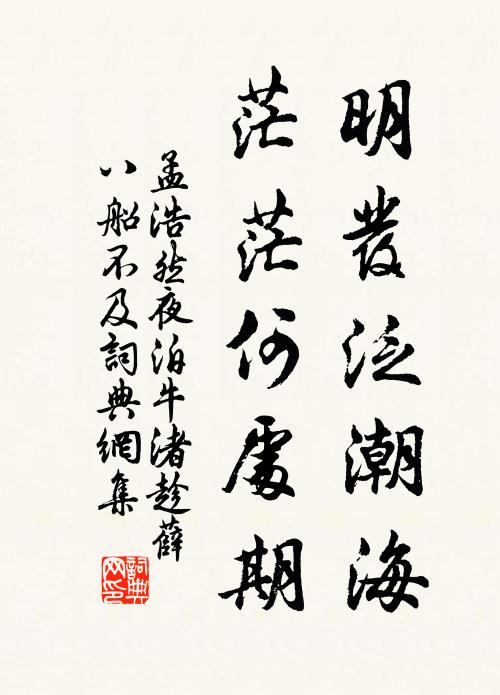 明發泛潮海
茫茫何處期
孟浩然夜泊牛渚趁薛
八船不及詞典網集
詞典网印